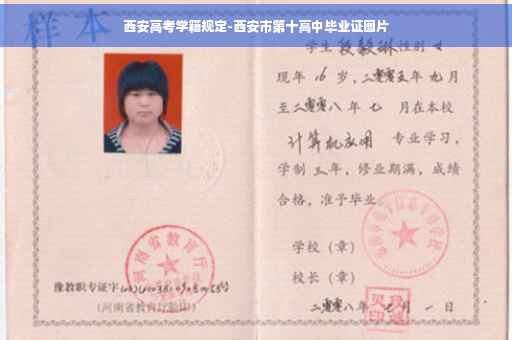 西安高考学籍规定-西安市第十高中毕业证图片
样本
学生 段毅琳 性别 女
现年 16 岁，二零零五年 九 月
至二零零八年 七 月在本校
计算机应用 专业学习，
学制 三 年，修业期满，成绩
合格，准予毕业
学校（章）
校长（章）
二零零八年 月 一 日
河南省教育厅
豫教职专证字
（河南省教育厅验印）